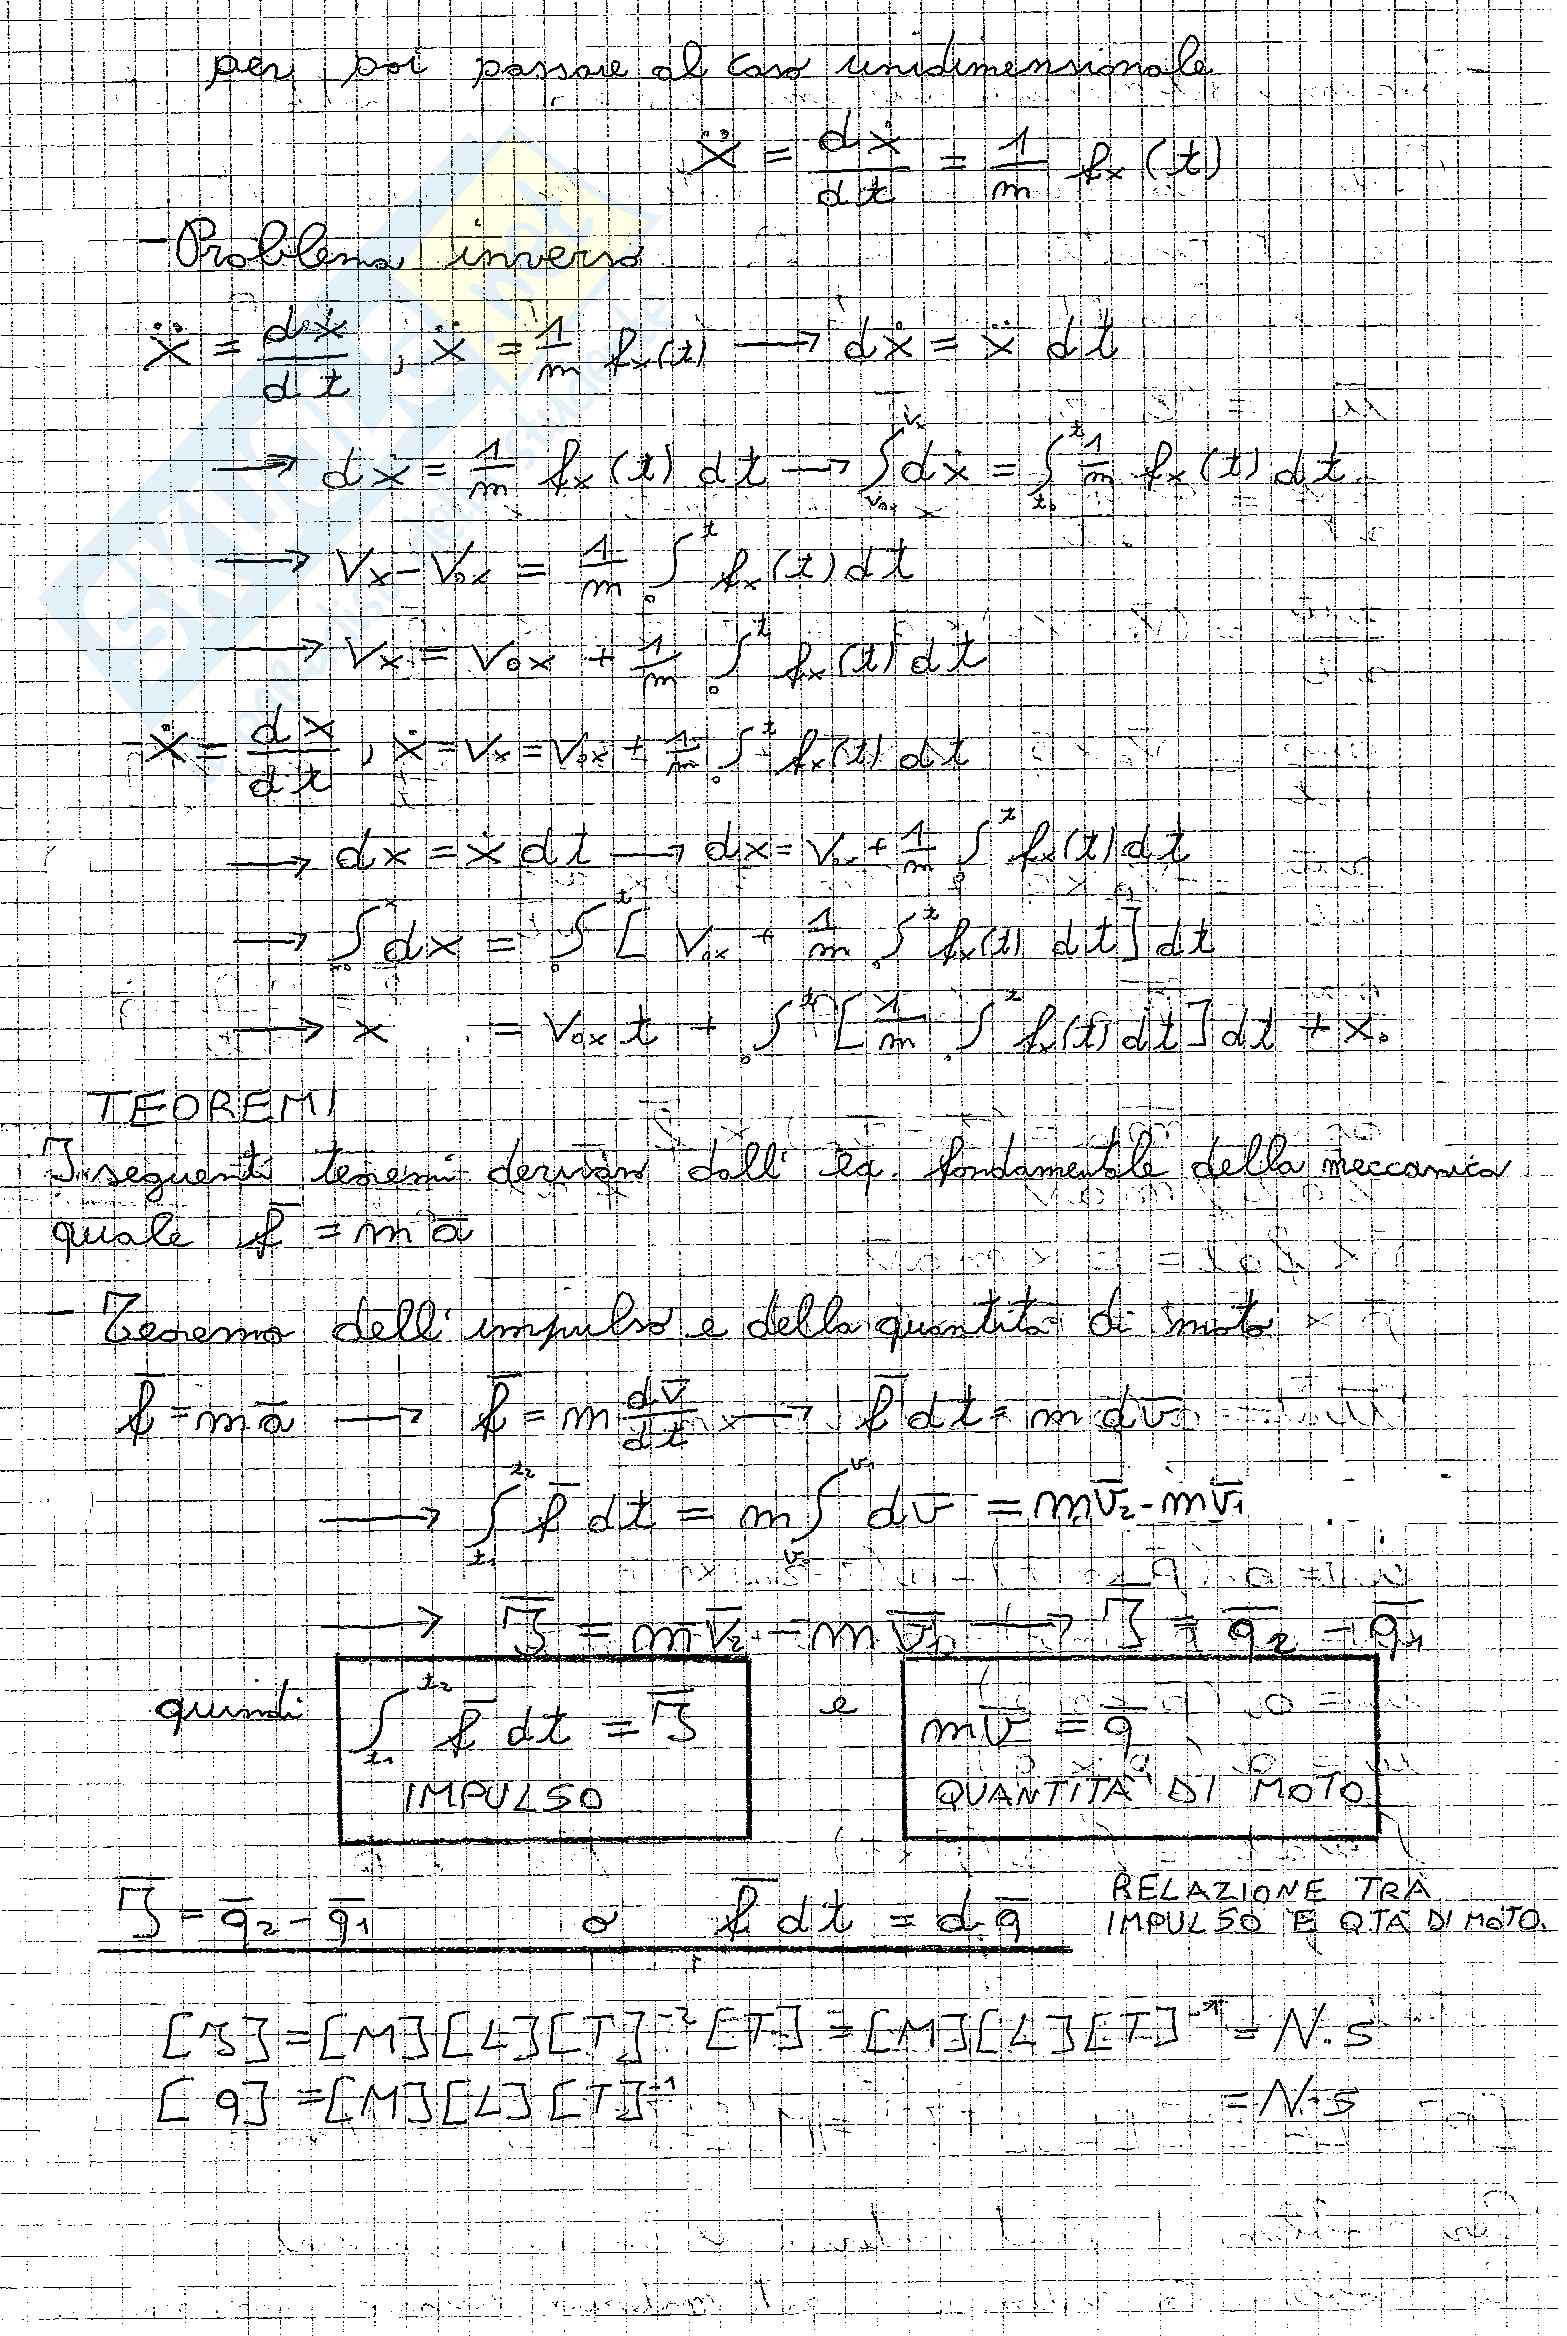 per poi passare al caso unidimensionale
ẍ = dẋ/dt = 1/m fx(t)
- Problema inverso
ẍ = dẋ/dt , ẍ = 1/m fx(t) → dẋ = ẍ dt
→ dẋ = 1/m fx(t) dt → ∫_{v0x}^{vx} dẋ = ∫_{t0}^{t} 1/m fx(t) dt
→ Vx - V0x = 1/m ∫_0^t fx(t) dt
→ Vx = V0x + 1/m ∫_0^t fx(t) dt
- ẋ = dx/dt , ẋ = Vx = V0x + 1/m ∫_0^t fx(t) dt
→ dx = ẋ dt → dx = V0x + 1/m ∫_0^t fx(t) dt
→ ∫_{x0}^{x} dx = ∫_0^t [ V0x + 1/m ∫_0^t fx(t) dt ] dt
→ x = V0x t + ∫_0^t [ 1/m ∫_0^t fx(t) dt ] dt + x0
TEOREMI
I seguenti teoremi derivano dall' eq. fondamentale della meccanica
quale f̄ = m ā
- Teorema dell' impulso e della quantità di moto
f̄ = m ā → f̄ = m dv̄/dt → f̄ dt = m dv̄
→ ∫_{t1}^{t2} f̄ dt = m ∫ dv̄ = m v̄2 - m v̄1
→ J̄ = m v̄2 - m v̄1 → J̄ = q̄2 - q̄1
quindi ∫_{t1}^{t2} f̄ dt = J̄ e m v̄ = q̄
IMPULSO QUANTITA' DI MOTO
J̄ = q̄2 - q̄1 o f̄ dt = d q̄ RELAZIONE TRA
IMPULSO E QTÀ DI MOTO.
[J] = [M][L][T]⁻² [T] = [M][L][T]⁻¹ = N·s
[q] = [M][L][T]⁻¹ = N·s